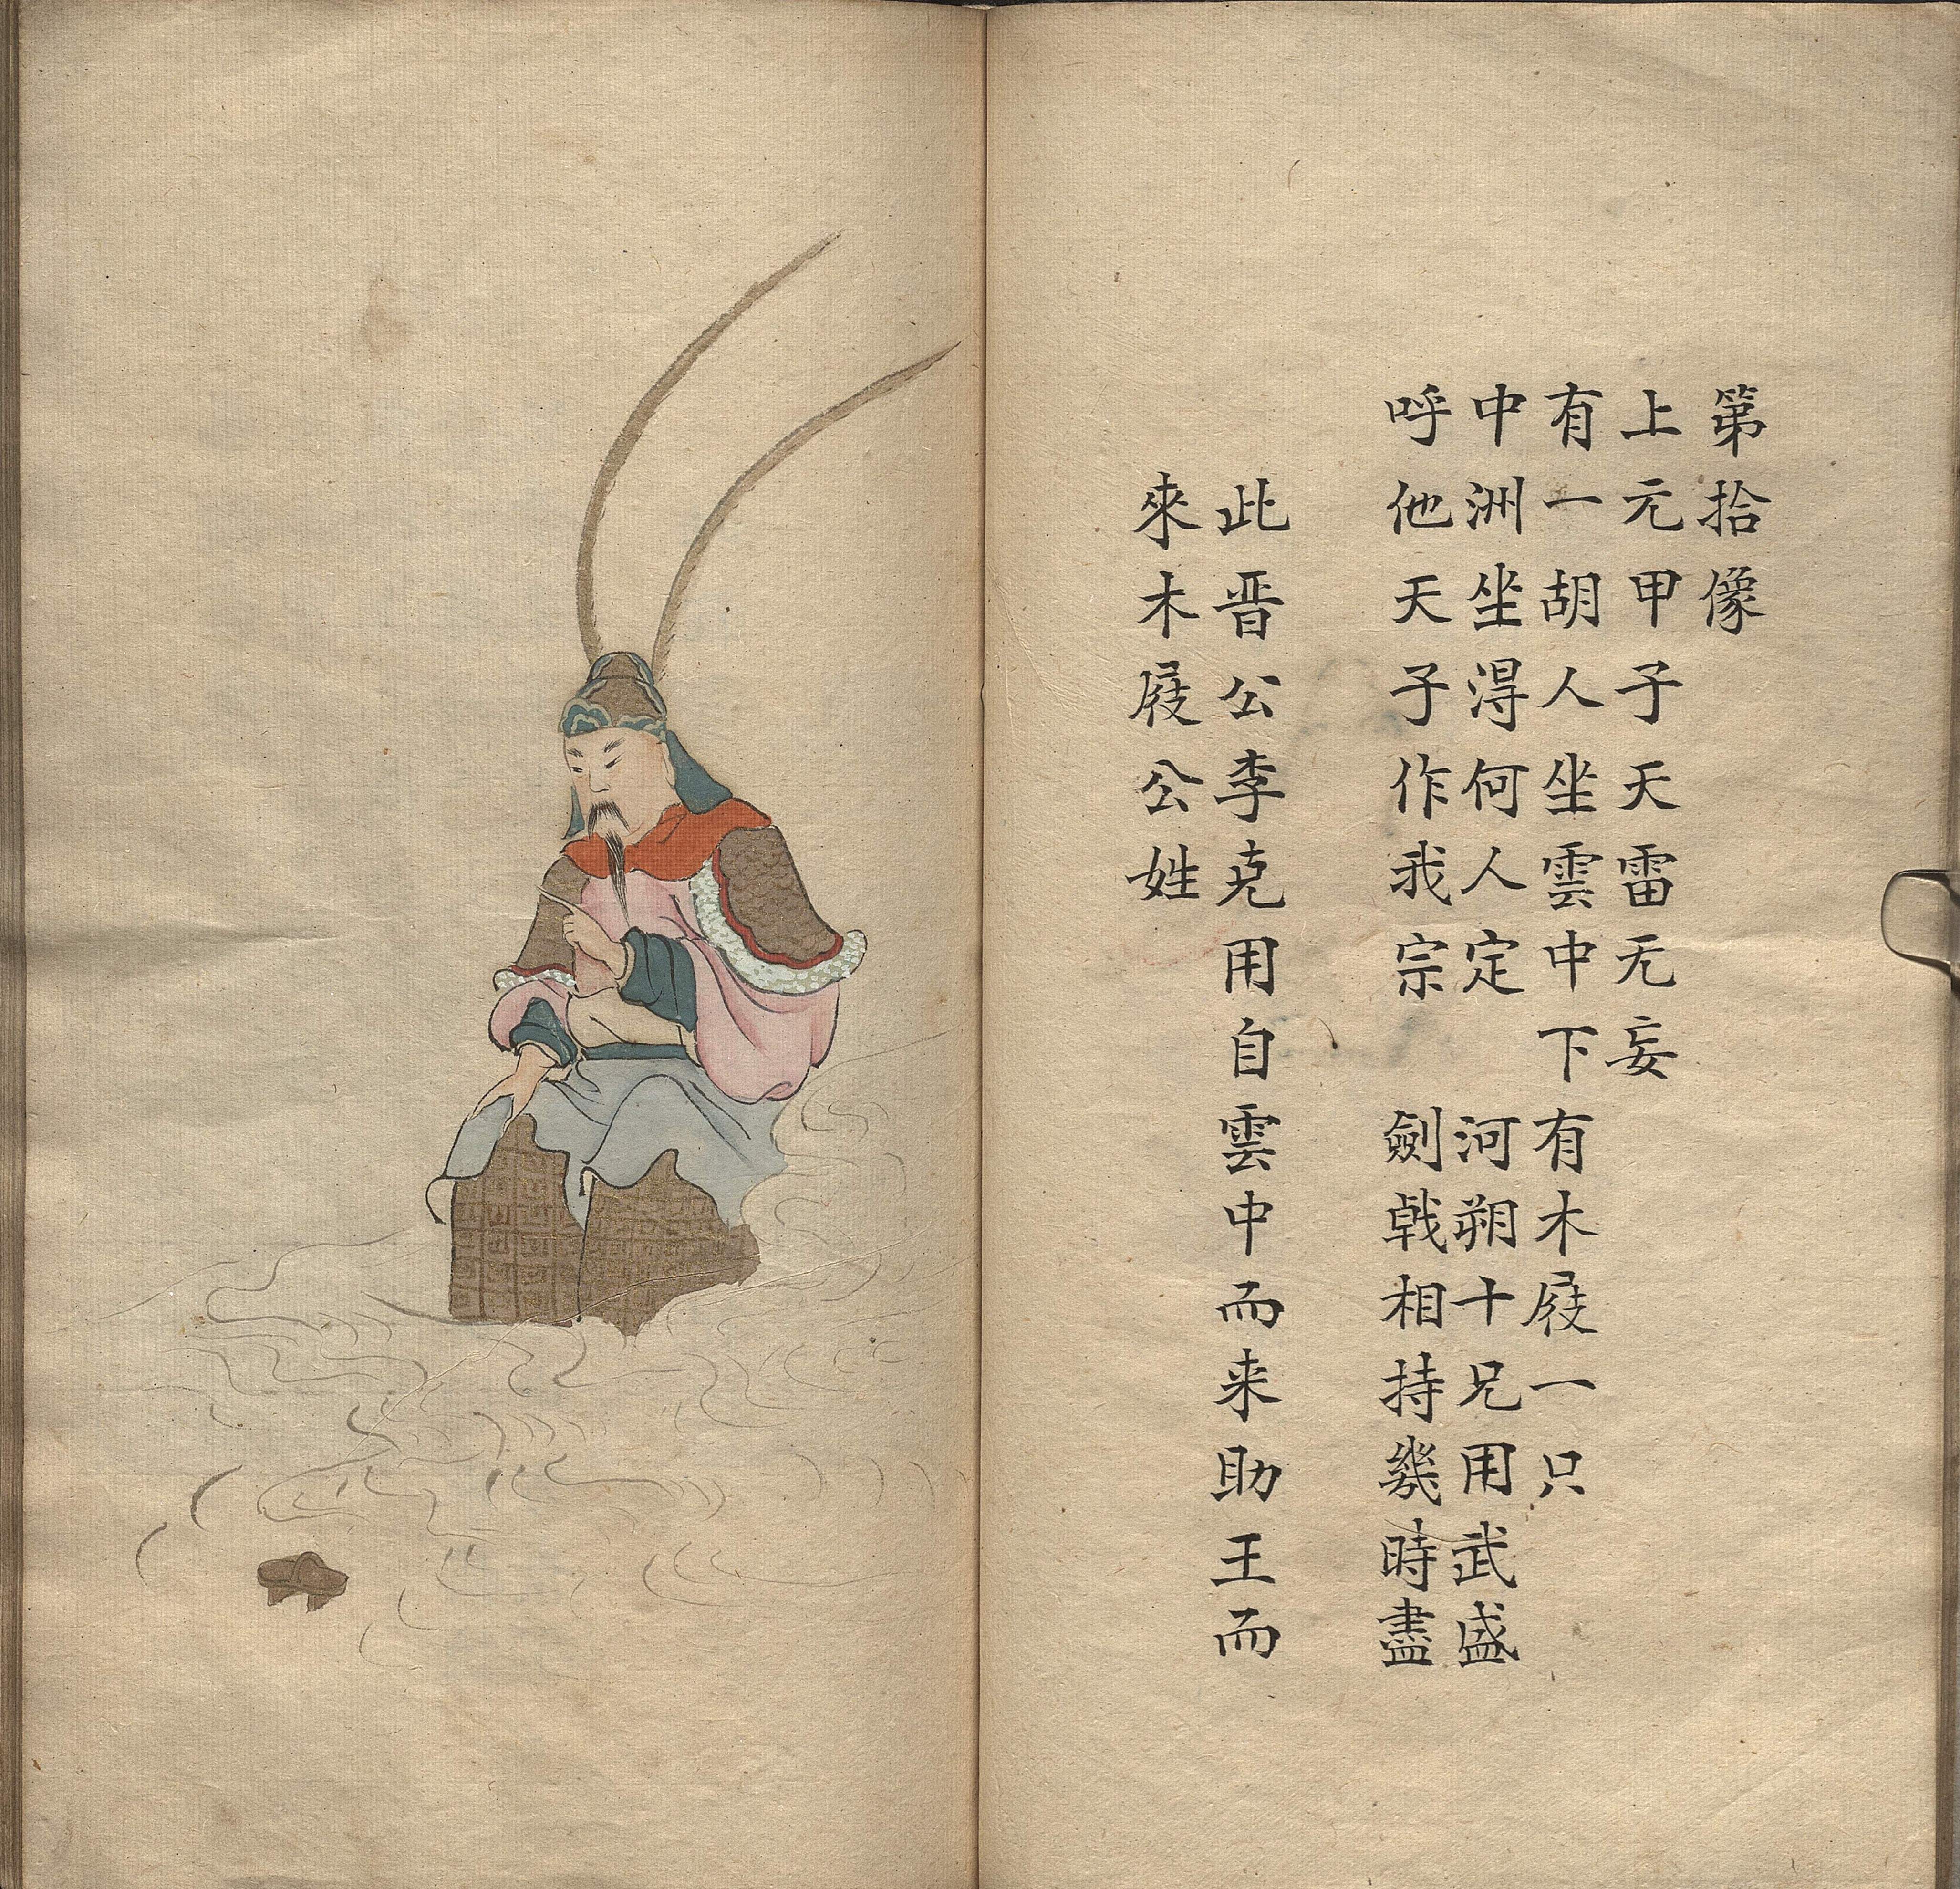 第拾像
上元甲子天雷无妄
有一胡人坐雲中下　有木屐一只
中洲坐得何人定　河朔十兄用武盛
呼他天子作我宗　劍戟相持幾時盡
此晋公李克用自雲中而来助王而
來木屐公姓